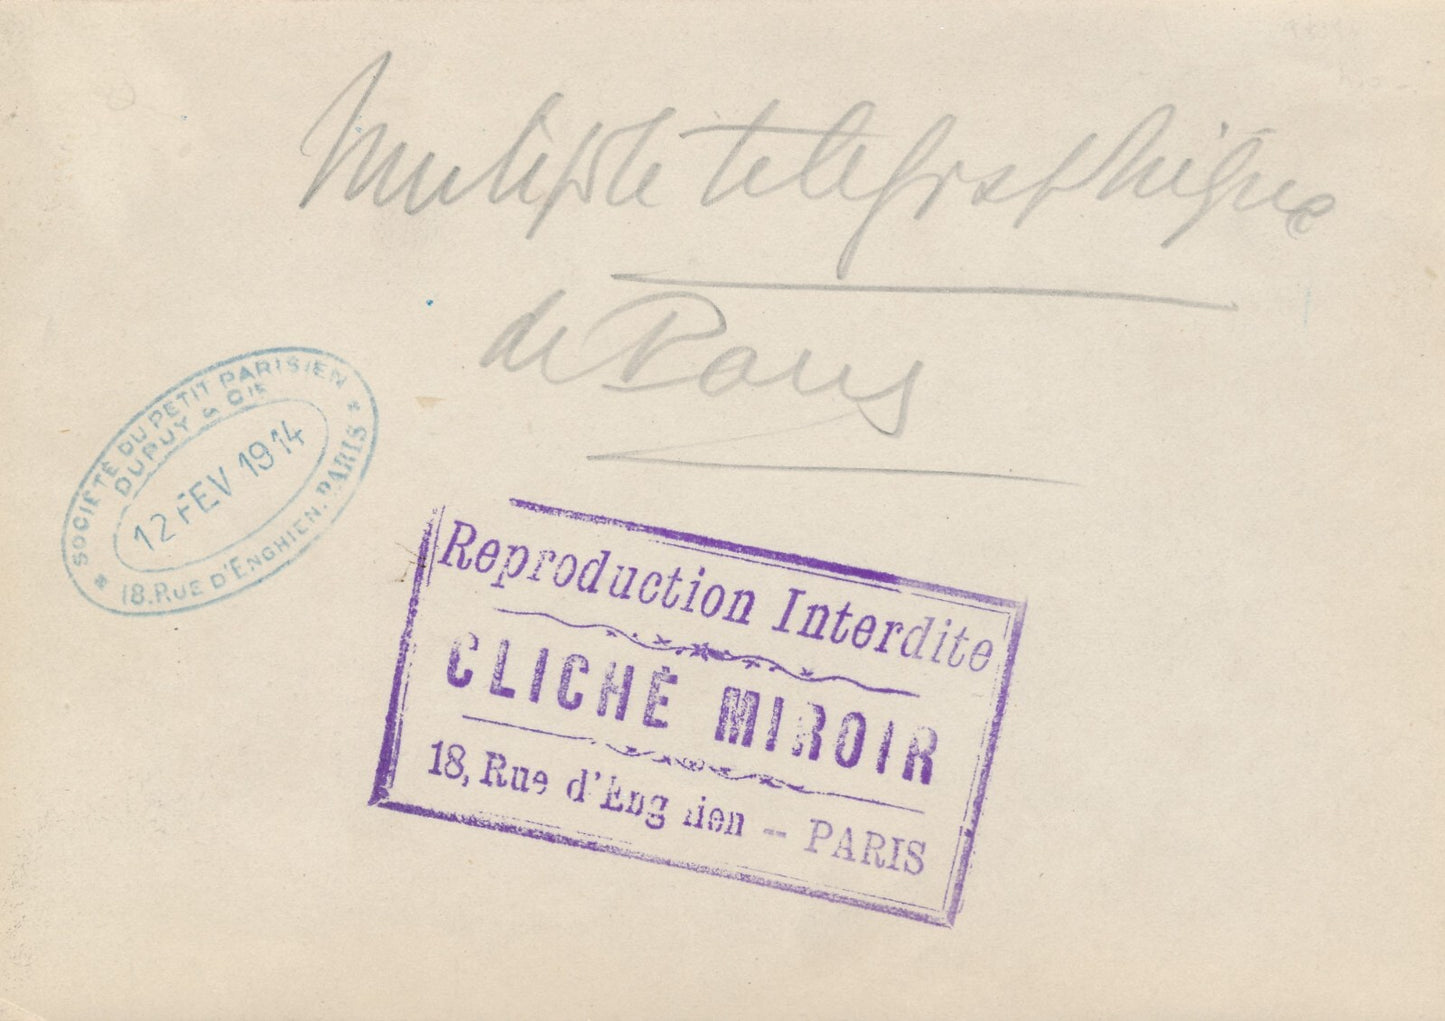 Multiple telegraphique
de Paris
SOCIÉTÉ DU PETIT PARISIEN
DUPUY & CIE
12 FEV 1914
18. RUE D'ENGHIEN. PARIS
Reproduction Interdite
CLICHÉ MIROIR
18, Rue d'Enghien -- PARIS